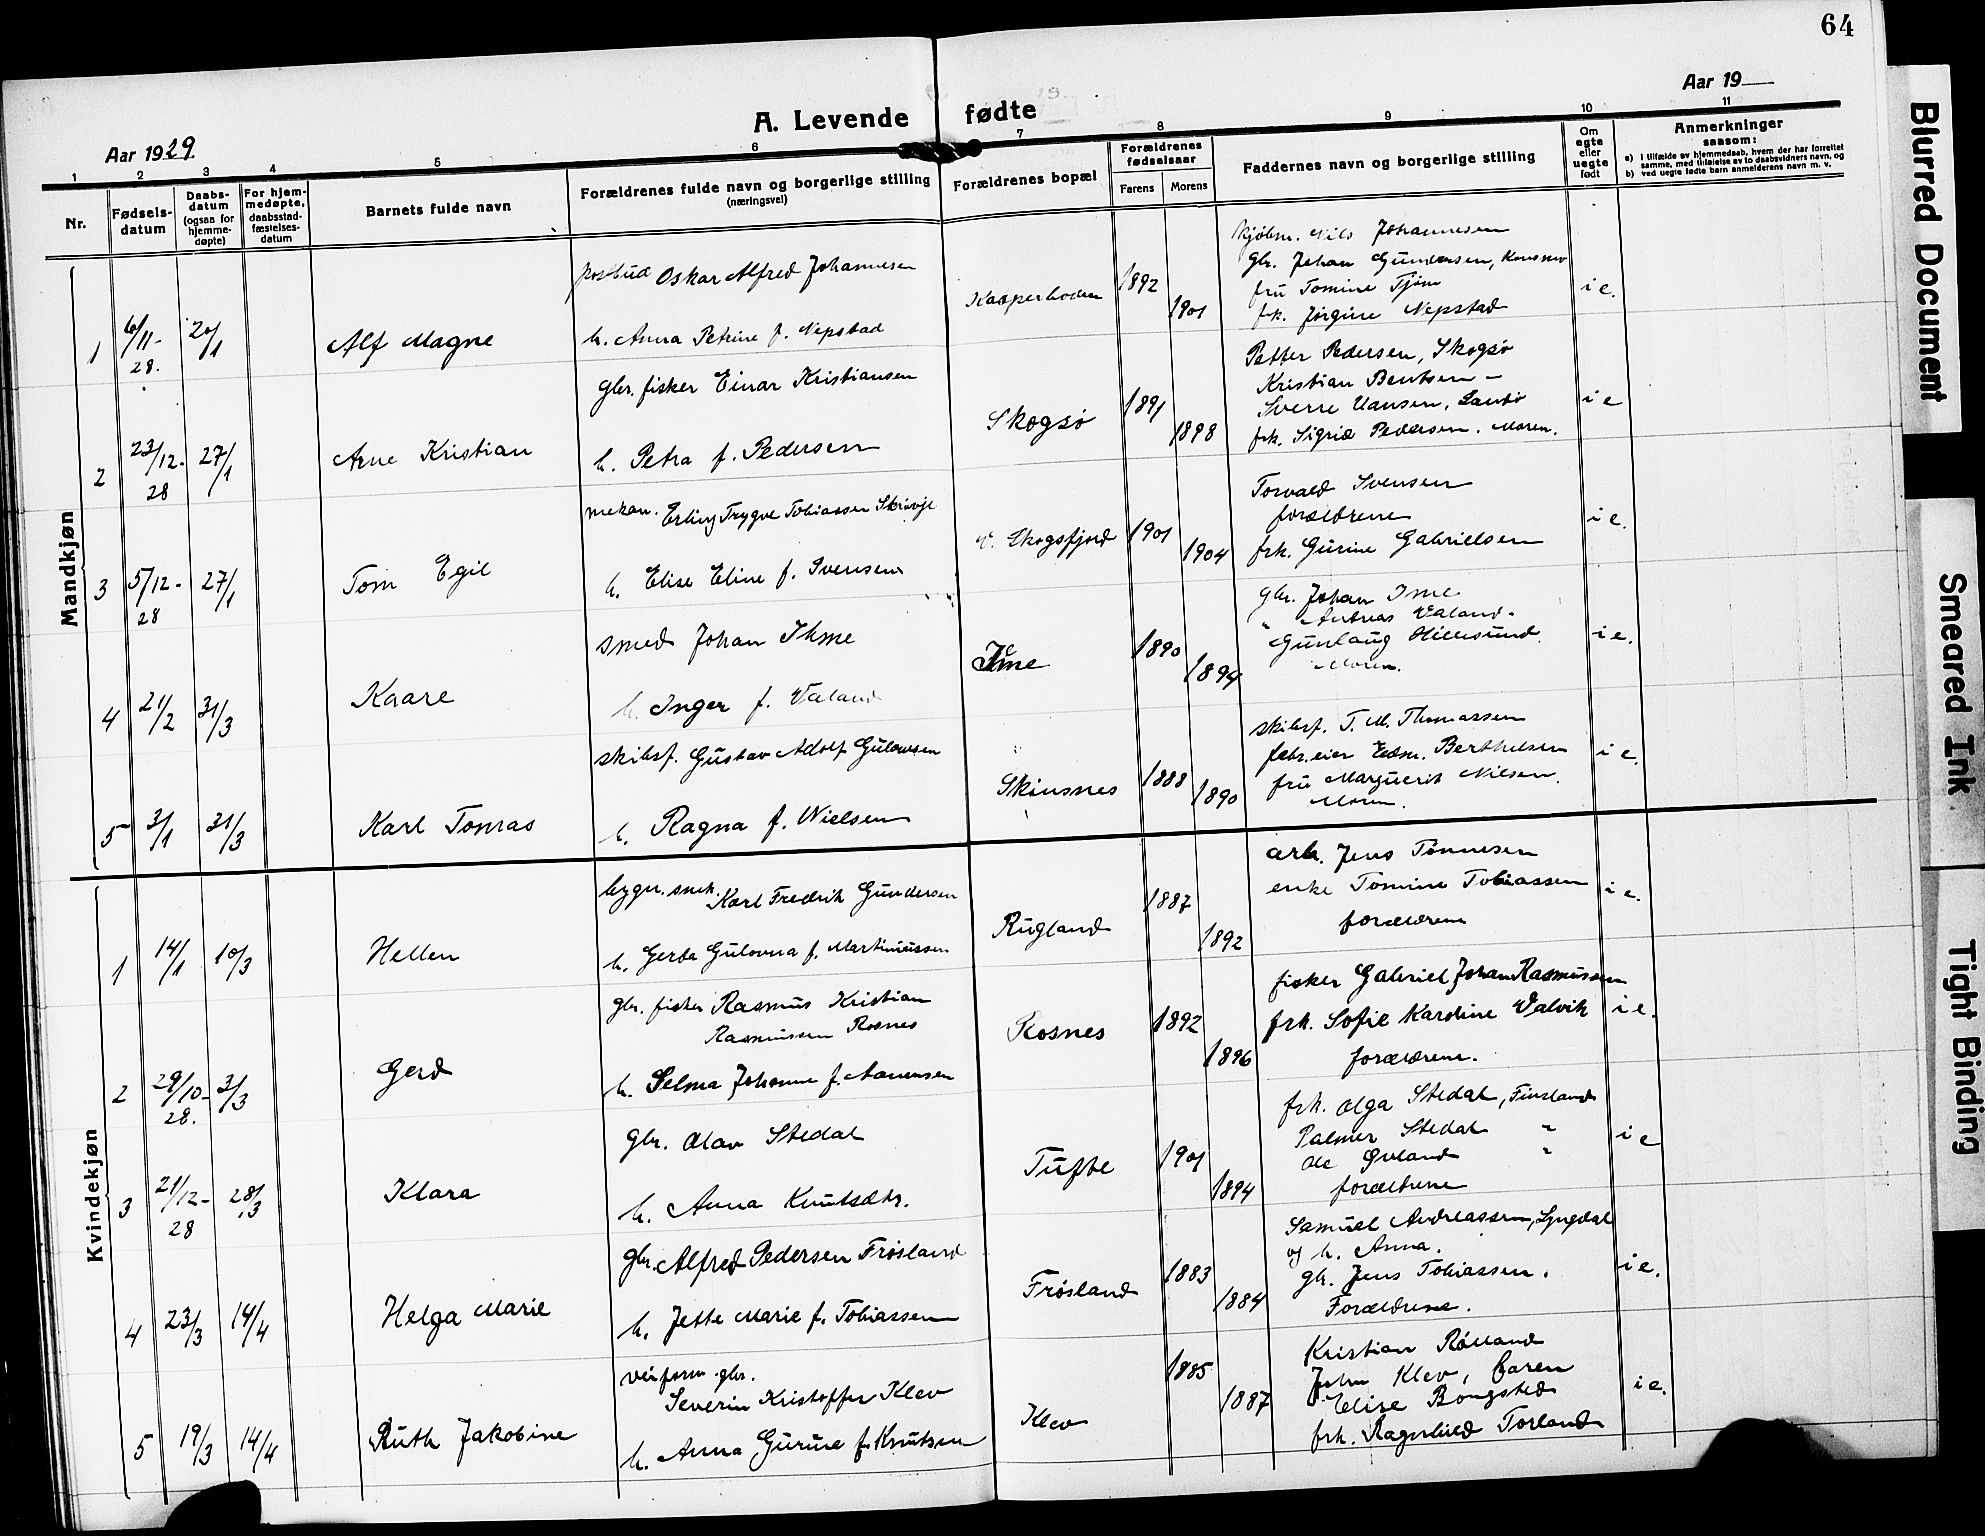 64
Aar 1929.
A. Levende fødte
Aar 19
1 2 3 4 5 6 7 8 9 10 11
Nr.
Fødsels-
datum
Daabs-
datum
(ogsaa for
hjemme-
døpte)
For hjem-
medøpte,
daabsstad-
fæstelses-
datum
Barnets fulde navn
Forældrenes fulde navn og borgerlige stilling
(næringsvei)
Forældrenes bopæl
Forældrenes
fødselsaar
Farens Morens
Faddernes navn og borgerlige stilling
Om
egte
eller
uegte
født
Anmerkninger
saasom:
a) i tilfælde av hjemmedaab, hvem der har forrettet
samme, med tilføielse av to daabsvidners navn, og
b) ved uegte fødte barn anmelderens navn m. v.
Mandkjøn
1 6/11- 28. 20/1 Alf Magne
postbud Oskar Alfred Johannesen
h. Anna Petrine f. Nepstad
1892
1901
Nils Johannesen
gbr. Johan Gundersen,
fru Tomine Tjøm
frk. Jørgine Nepstad
i e.
2 23/12- 28 27/1 Arne Kristian
gbr. fisker Einar Kristiansen
h. Petra f. Pedersen
Skogsø
1891
1898
Petter Pedersen, Skogsø
Kristian Bentsen -
Sverre Hansen,
frk. Sigrid Pedersen. Moren.
i e
3 5/12- 28 27/1 Tom Egil
mekan. Erling Trygve Tobiassen
h. Elise Eline f. Svensen
V. Skogsfjord
1901
1904
Torvald Svensen
forældrene
frk. Gurine Gabrielsen
i e.
4 21/2 31/3 Kaare
smed Johan Ihme
h. Inger f. Valand
Ime
1890
1894
gbr. Johan Ime
" Andreas Valand.
Gunlaug Hillesund
Moren.
i e.
5 3/1 31/3 Karl Tomas
skibsf. Gustav Adolf Gulowsen
h. Ragna f. Nielsen
Skinsnes
1888
1890
skibsf. T. M. Thomassen
fabr.eier Edm. Berthelsen
fru Marguerit Nilsen.
Moren.
i e.
Kvindekjøn
1 14/1 10/3 Hellen
bygn. snek. Karl Fredrik Gundersen
h. Gerda Gulovna f. Martinussen
Rugland
1887
1892
arb. Jens Tønnesen
enke Tomine Tobiassen
forældrene
i e.
2 29/10- 28. 3/3 Gerd
gbr. fisker Rasmus Kristian
Rasmussen Rosnes
h. Selma Johanne f. Aanensen
Rosnes
1892
1896
fisker Gabriel Johan Rasmussen
frk. Sofie Karoline Valvik
forældrene.
i e.
3 21/12- 28 28/3 Klara
gbr. Olav Stedal
h. Anna Knutsdtr.
Tufte
1901
1894
frk. Olga Stedal, Finsland
Palmer Stedal "
Ole Øvland "
forældrene
i e
4 23/3 14/4 Helga Marie
gbr. Alfred Pedersen Frøsland
h. Jette Marie f. Tobiassen
Frøsland
1883
1884
Samuel Andreassen, Lyngdal
og h. Anna.
gbr. Jens Tobiassen.
Forældrene.
i e.
5 19/3 14/4 Ruth Jakobine
veiform. gbr.
Severin Kristoffer Klev
h. Anna Gurine f. Knutsen
Klev
1885
1887
Kristian Rølland
John Klev, faren
Elise Bongsted
frk. Ragnhild Torland
i e.
Blurred Document
Smeared Ink
Tight Binding